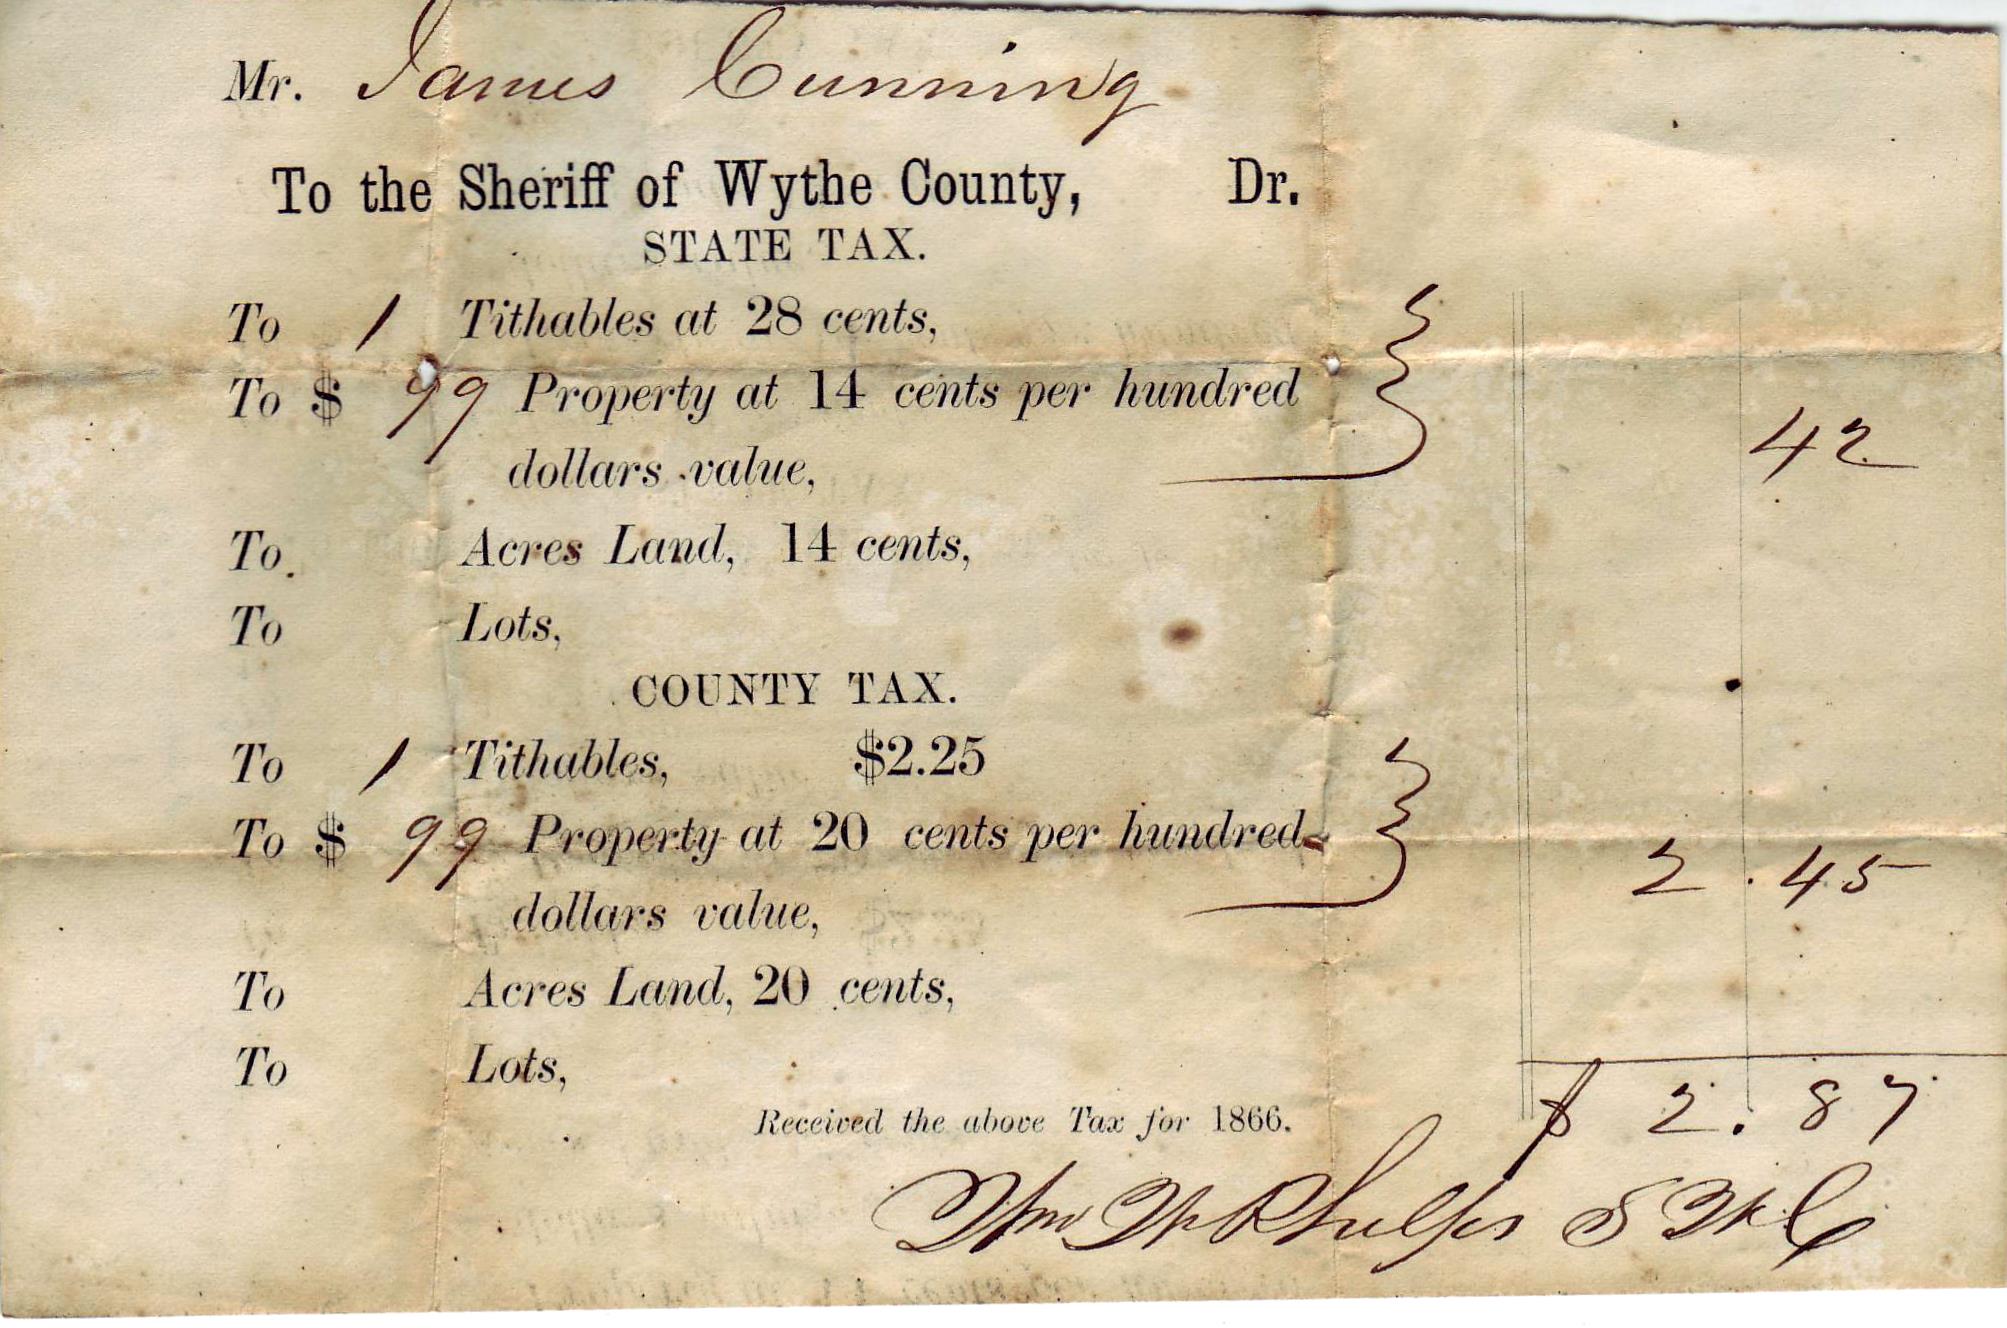 Mr. James Cunning
To the Sheriff of Wythe County, Dr.
STATE TAX.
To 1 Tithables at 28 cents,
To $ 99 Property at 14 cents per hundred
dollars value, 42
To Acres Land, 14 cents,
To Lots,
COUNTY TAX.
To 1 Tithables, $2.25
To $ 99 Property at 20 cents per hundred 2.45
dollars value,
To Acres Land, 20 cents,
To Lots,
$ 2.87
Received the above Tax for 1866.
Wm W Phelps S W C